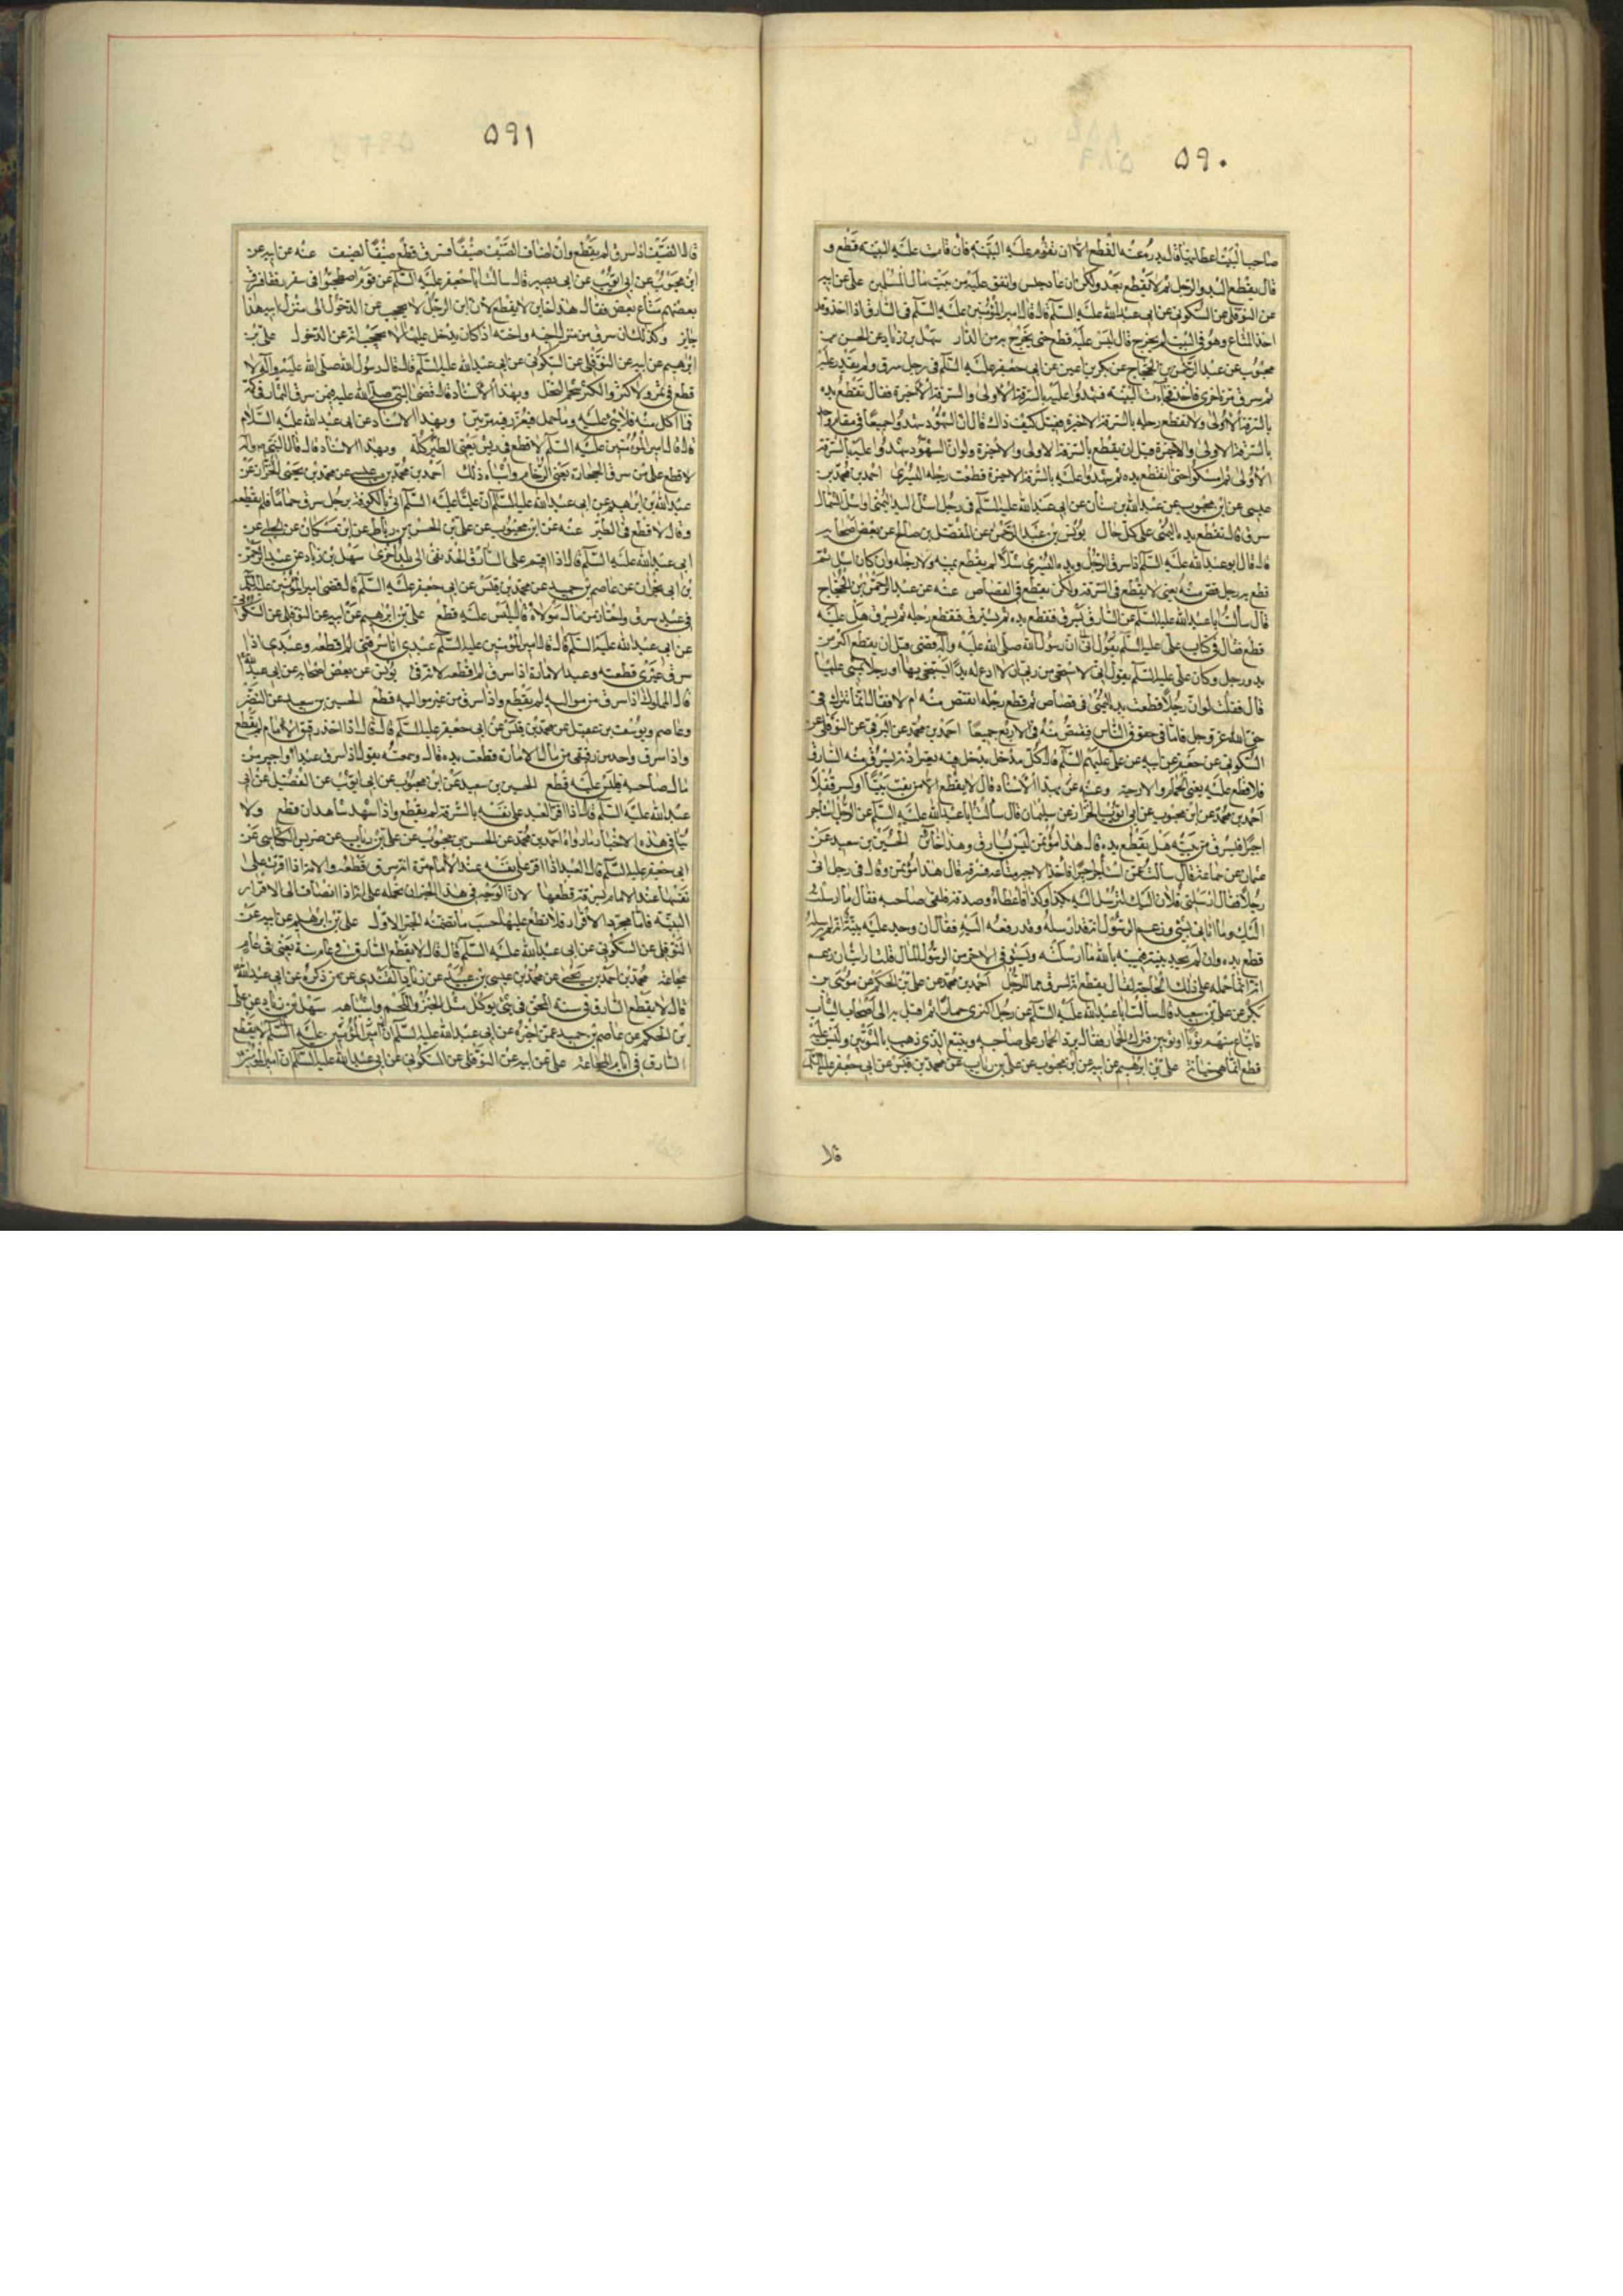 ۵۹۰
صاحب البیت اعطانیها قال یدرء عنه القطع الا ان تقوم علیه البینة فان قامت علیه البینة قطع و
قال یقطع الید والرجل ثم لا یقطع بعد ولکن ان عاد حبس وانفق علیه من بیت مال المسلمین علی عن ابیه
عن النوفلی عن السکونی عن ابی عبدالله علیه السلم قال قال امیرالمؤمنین علیه السلم فی السارق اذا اخذ وقد
اخذ المتاع وهو فی البیت لم یخرج قال لیس علیه قطع حتی یخرج به من الدار سهل بن زیاد عن الحسن بن
محبوب عن عبدالرحمن بن الحجاج عن بکیر بن اعین عن ابی جعفر علیه السلم فی رجل سرق ولم یقدر علیه
ثم سرق مرة اخری فاخذ فجاءت البینة فشهدوا علیه بالسرقة الاولی والسرقة الاخیرة فقال تقطع یده
بالسرقة الاولی ولا تقطع رجله بالسرقة الاخیرة فقیل کیف ذاک قال لان الشهود شهدوا جمیعا فی مقام واحد
بالسرقة الاولی والاخیرة قبل ان یقطع بالسرقة الاولی والاخیرة ولو ان الشهود شهدوا علیه بالسرقة
الاولی ثم امسکوا حتی تقطع یده ثم شهدوا علیه بالسرقة الاخیرة قطعت رجله الیسری احمد بن محمد بن
عیسی عن ابن محبوب عن عبدالله بن سنان عن ابی عبدالله علیه السلم فی رجل اشل الید الیمنی او اشل الشمال
سرق قال تقطع یده الیمنی علی کل حال یونس بن عبدالرحمن عن المفضل بن صالح عن بعض اصحابه
قال قال ابوعبدالله علیه السلم اذا سرق الرجل ویده الیسری شلاء لم یقطع یمینه ولا رجله وان کان اشل ثم
قطع ید رجل قص منه یعنی لا یقطع فی السرقة ولکن یقطع فی القصاص عنه عن عبدالرحمن بن الحجاج
قال سألت اباعبدالله علیه السلم عن السارق یسرق فتقطع یده ثم یسرق فتقطع رجله ثم یسرق هل علیه
قطع فقال فی کتاب علی علیه السلم ان رسول الله صلی الله علیه وآله قضی قبل ان یقطع اکثر من
ید ورجل وکان علی علیه السلم یقول انی لا ستحیی من ربی ان لا ادع له یدا یستنجی بها او رجلا یمشی علیها
قال فقلت لو ان رجلا قطعت یده الیمنی فی قصاص ثم قطع رجله ایقتص منه ام لا فقال انما یترک فی
حق الله عز وجل فاما فی حقوق الناس فیقتص منه فی الاربع جمیعا احمد بن محمد عن البرقی عن النوفلی عن
السکونی عن جعفر عن ابیه عن علی علیهم السلم قال کل مدخل یدخل فیه بغیر اذن یسرق منه السارق
فلا قطع علیه یعنی الحمام والارحیة وعنه عن بهذا الاسناد قال لا یقطع الا من نقب بیتا او کسر قفلا
احمد بن محمد عن ابن محبوب عن ابی ایوب الخزاز عن سلیمان قال سألت اباعبدالله علیه السلم عن الرجل استأجر
اجیرا فیسرق من بیته هل یقطع یده قال هذا مؤتمن لیس بسارق وهذا خائن الحسین بن سعید عن
عثمان عن سماعة قال سألته عن استأجر اجیرا فاخذ الاجیر متاعه فسرقه قال هذا مؤتمن وقال فی رجل اتی
رجلا فقال ارسلنی فلان الیک لترسل الیه بکذا وکذا فاعطاه وصدقه فلقی صاحبه فقال ما ارسلت
الیک وما اتانی بشیء وزعم الرسول انه قد ارسله وقد دفعه الیه فقال ان وجد علیه بینة انه لم یرسله
قطع یده وان لم یجد بینة فیمینه بالله ما ارسلته ویستوفی الاخر من الرسول المال قلت ارایت ان زعم
انه انما حمله علی ذلک الحاجة فقال یقطع لانه سرق مال الرجل احمد بن محمد عن علی بن الحکم عن موسی بن
بکر عن علی بن سعید قال سألت اباعبدالله علیه السلم عن رجل اکتری حمارا ثم اقبل به الی اصحاب الثیاب
فابتاع منهم ثوبا او ثوبین فترک الحمار فقال یرد الحمار علی صاحبه ویتبع الذی ذهب بالثوبین ولیس علیه
قطع انما هی خیانة علی بن ابرهیم عن ابیه عن ابن محبوب عن علی بن رئاب عن محمد بن قیس عن ابی جعفر علیه السلم
قال
۵۹۱
قال الضیف اذا سرق لم یقطع وان اضاف الضیف ضیفا فسرق قطع ضیف الضیف عنه عن ابیه عن
ابن محبوب عن ابی ایوب عن ابی بصیر قال سألت اباجعفر علیه السلم عن قوم اصطحبوا فی سفر رفقاء فسرق
بعضهم متاع بعض فقال هذا خاین لا یقطع لان ابن الرجل لا یحجب عن الدخول الی منزل ابیه هذا
خاین وکذلک ان سرق من منزل اخیه واخته اذا کان یدخل علیهما لا یحجبانه عن الدخول علی بن
ابرهیم عن ابیه عن النوفلی عن السکونی عن ابی عبدالله علیه السلم قال قال رسول الله صلی الله علیه وآله لا
قطع فی ثمر ولا کثر والکثر شحم النخل وبهذا الاسناد قال قضی النبی صلی الله علیه فیمن سرق الثمار فی کمه
فما اکل منه فلا شیء علیه وما حمل فیعزر ویغرم قیمته مرتین وبهذا الاسناد عن ابی عبدالله علیه السلام
قال قال امیرالمؤمنین علیه السلم لا قطع فی ریش یعنی الطیر کله وبهذا الاسناد قال قال النبی ص وآله
لا قطع علی من سرق الحجارة یعنی الرخام واشباه ذلک احمد بن محمد بن عیسی عن محمد بن یحیی الخزاز عن
غیاث بن ابرهیم عن ابی عبدالله علیه السلم ان علیا علیه السلم اتی بالکوفة برجل سرق حماما فلم یقطعه
وقال لا قطع فی الطیر عنه عن ابن محبوب عن علی بن الحسن بن رباط عن ابن مسکان عن الحلبی عن
ابی عبدالله علیه السلم قال اذا اقیم علی السارق الحد نفی الی بلدة اخری سهل بن زیاد عن عبدالرحمن
بن ابی نجران عن عاصم بن حمید عن محمد بن قیس عن ابی جعفر علیه السلم قال قضی امیرالمؤمنین علیه السلم
فی عبد سرق واختان من مال مولاه قال لیس علیه قطع علی بن ابرهیم عن ابیه عن النوفلی عن السکونی
عن ابی عبدالله علیه السلم قال قال امیرالمؤمنین علیه السلم عبدی اذا سرقنی لم اقطعه وعبدی اذا
سرق غیری قطعته وعبد الامارة اذا سرق لم اقطعه لانه فیء یونس عن بعض اصحابه عن ابی عبدالله
قال المملوک اذا سرق من موالیه لم یقطع واذا سرق من غیر موالیه قطع الحسین بن سعید عن النضر
وعاصم ویوسف بن عقیل عن محمد بن قیس عن ابی جعفر علیه السلم قال قال اذا اخذ رقیق الامام لم یقطع
واذا سرق واحد من رقیقی من مال الامارة قطعت یده قال وسمعته یقول اذا سرق عبد او اجیر من
مال صاحبه فلیس علیه قطع الحسین بن سعید عن ابن محبوب عن ابی ایوب عن الفضیل عن ابی
عبدالله علیه السلم قال اذا اقر العبد علی نفسه بالسرقة لم یقطع واذا شهد شاهدان قطع ولا
ینافی هذه الاخبار ما رواه احمد بن محمد عن الحسن بن محبوب عن علی بن رئاب عن ضریس الکناسی عن
ابی جعفر علیه السلم قال العبد اذا اقر علی نفسه عند الامام مرة انه سرق قطعه والامة اذا اقرت علی
نفسها عند الامام بسرقة قطعها لان الوجه فی هذا الخبر ان نحمله علی انه اذا انضاف الی الاقرار
البینة فاما مجرد الاقرار فلا قطع علیها حسب ما تضمنه الخبر الاول علی بن ابرهیم عن ابیه عن
النوفلی عن السکونی عن ابی عبدالله علیه السلم قال قال لا یقطع السارق فی عام سنة یعنی فی عام
مجاعة محمد بن احمد بن یحیی عن محمد بن عیسی بن عبید عن زیاد القندی عمن ذکره عن ابی عبدالله
قال لا یقطع السارق فی سنة المحق فی شیء یوکل مثل الخبز واللحم واشباهه سهل بن زیاد عن علی
بن الحکم عن عاصم بن حمید عمن اخبره عن ابی عبدالله علیه السلم ان امیرالمؤمنین علیه السلم لا یقطع
السارق فی ایام المجاعة علی عن ابیه عن النوفلی عن السکونی عن ابی عبدالله علیه السلم ان امیرالمؤمنین